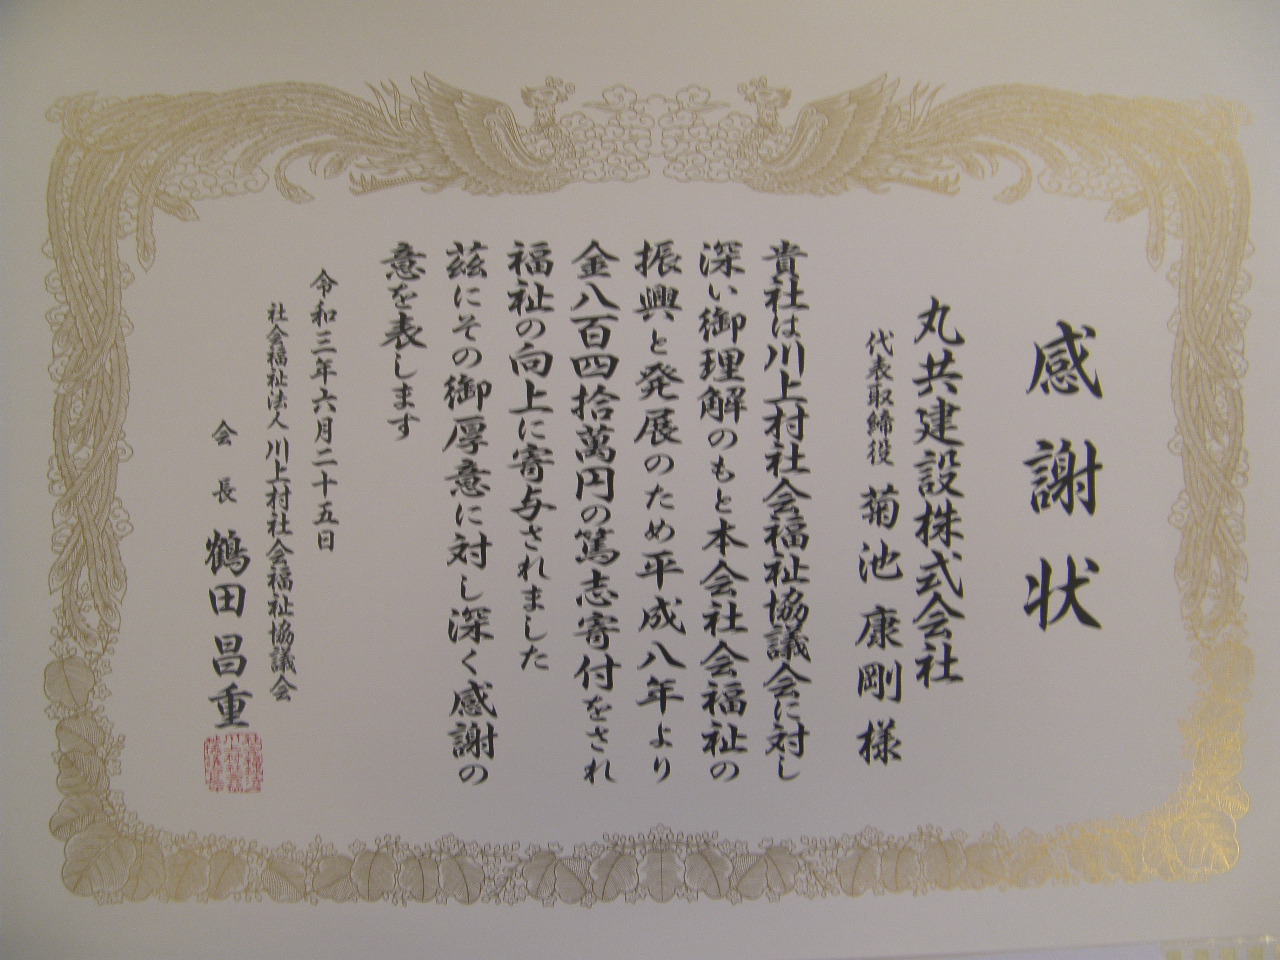 感謝状
丸共建設株式会社
代表取締役 菊池康剛様
貴社は川上村社会福祉協議会に対し
深い御理解のもと本会社会福祉の
振興と発展のため平成八年より
金八百四拾萬円の篤志寄付をされ
福祉の向上に寄与されました
茲にその御厚意に対し深く感謝の
意を表します
令和三年六月二十五日
社会福祉法人川上村社会福祉協議会
会長 鶴田昌重